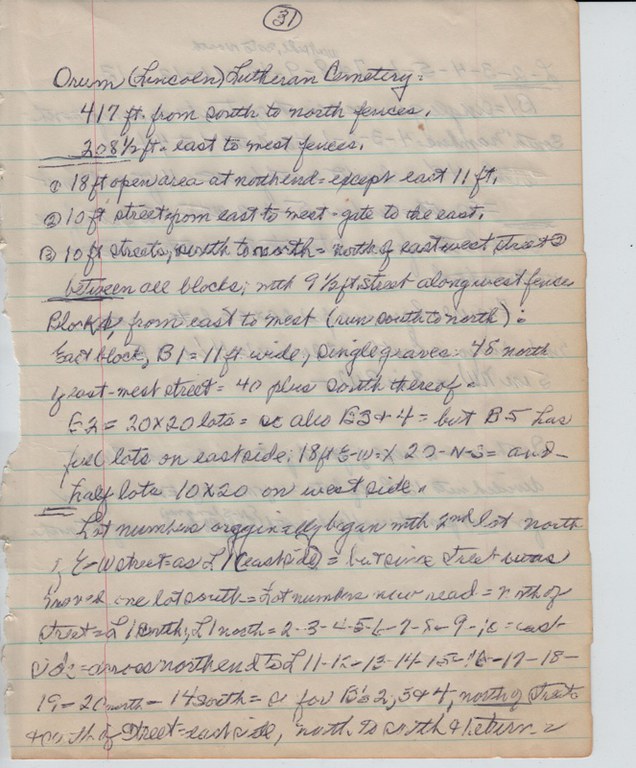 31
Orum (Lincoln) Lutheran Cemetery =
417 ft. from south to north fences.
208 1/2 ft. east to west fences.
① 18 ft open area at north end = except east 11 ft.
② 10 ft street from east to west - gate to the east.
③ 10 ft streets, south to north = north of east west street ②
between all blocks; with 9 1/2 ft. street along west fence
Block, from east to west (run south to north) :
East block, B1 = 11 ft wide, single graves = 48 north
of east-west street = 40 plus south thereof =
B2 = 20x20 lots = so also B3 & 4 = but B5 has
full lots on east side; 18 ft E-W x 20-N-S = and
half lots 10x20 on west side.
Lot numbers originally began with 2nd lot north
of E-W street as L1 (east side) = but since street was
moved one lot south = Lot numbers now read = north of
street = L1 north, L1 north = 2-3-4-5-6-7-8-9-10 = east
side - across north end to L11-12-13-14-15-16-17-18-
19-20 north - 14 south = so for B's 2, 3 & 4, north of street
south of street = east side, north to south & return =